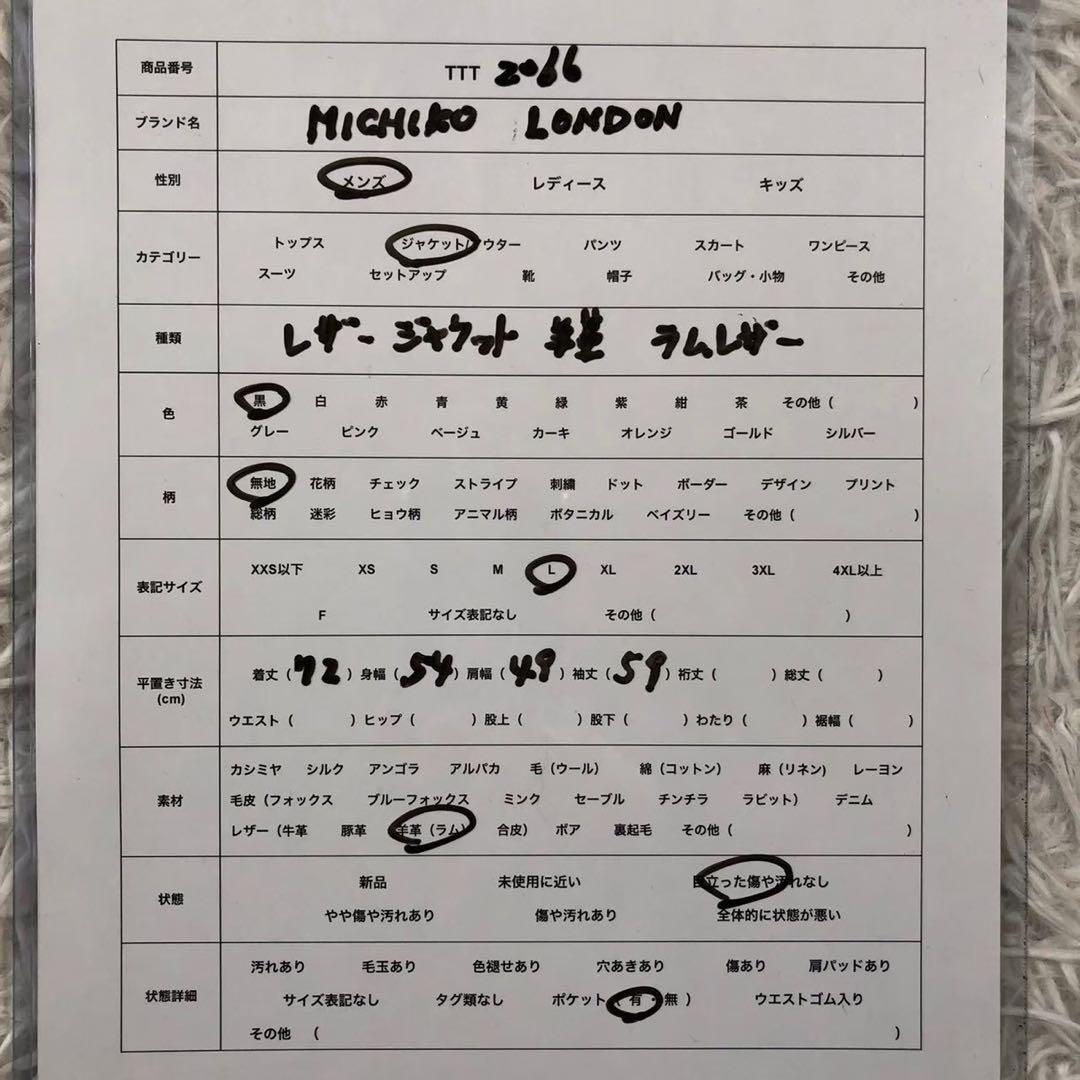 商品番号 TTT 2066
ブランド名 MICHIKO LONDON
性別 メンズ レディース キッズ
カテゴリー トップス ジャケット/アウター パンツ スカート ワンピース
スーツ セットアップ 靴 帽子 バッグ・小物 その他
種類 レザージャケット 羊革 ラムレザー
色 黒 白 赤 青 黄 緑 紫 紺 茶 その他( )
グレー ピンク ベージュ カーキ オレンジ ゴールド シルバー
柄 無地 花柄 チェック ストライプ 刺繍 ドット ボーダー デザイン プリント
総柄 迷彩 ヒョウ柄 アニマル柄 ボタニカル ペイズリー その他( )
表記サイズ XXS以下 XS S M L XL 2XL 3XL 4XL以上
F サイズ表記なし その他( )
平置き寸法 着丈(72)身幅(54)肩幅(49)袖丈(59)裄丈( )総丈( )
(cm) ウエスト( )ヒップ( )股上( )股下( )わたり( )裾幅( )
素材 カシミヤ シルク アンゴラ アルパカ 毛(ウール) 綿(コットン) 麻(リネン) レーヨン
毛皮(フォックス ブルーフォックス ミンク セーブル チンチラ ラビット) デニム
レザー(牛革 豚革 羊革(ラム) 合皮) ボア 裏起毛 その他( )
状態 新品 未使用に近い 目立った傷や汚れなし
やや傷や汚れあり 傷や汚れあり 全体的に状態が悪い
状態詳細 汚れあり 毛玉あり 色褪せあり 穴あきあり 傷あり 肩パッドあり
サイズ表記なし タグ類なし ポケット(有・無) ウエストゴム入り
その他( )